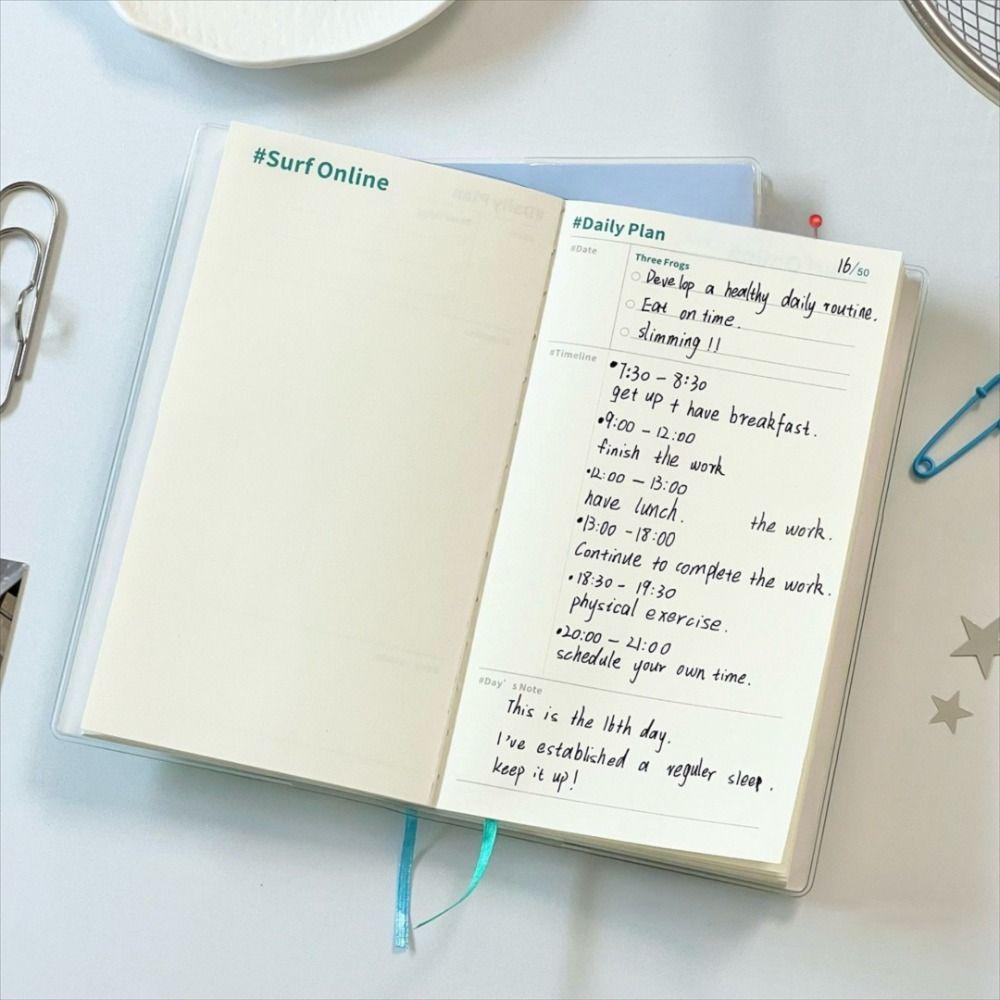 #Surf Online
#Daily Plan
16/50
#Date
Three Frogs
Develop a healthy daily routine.
Eat on time.
slimming !!
#Timeline
•7:30 – 8:30
get up + have breakfast.
•9:00 – 12:00
finish the work
•12:00 – 13:00
have lunch. the work.
•13:00 - 18:00
Continue to complete the work.
•18:30 - 19:30
physical exercise.
•20:00 – 21:00
schedule your own time.
#Day's Note
This is the 16th day.
I've established a reguler sleep.
keep it up!